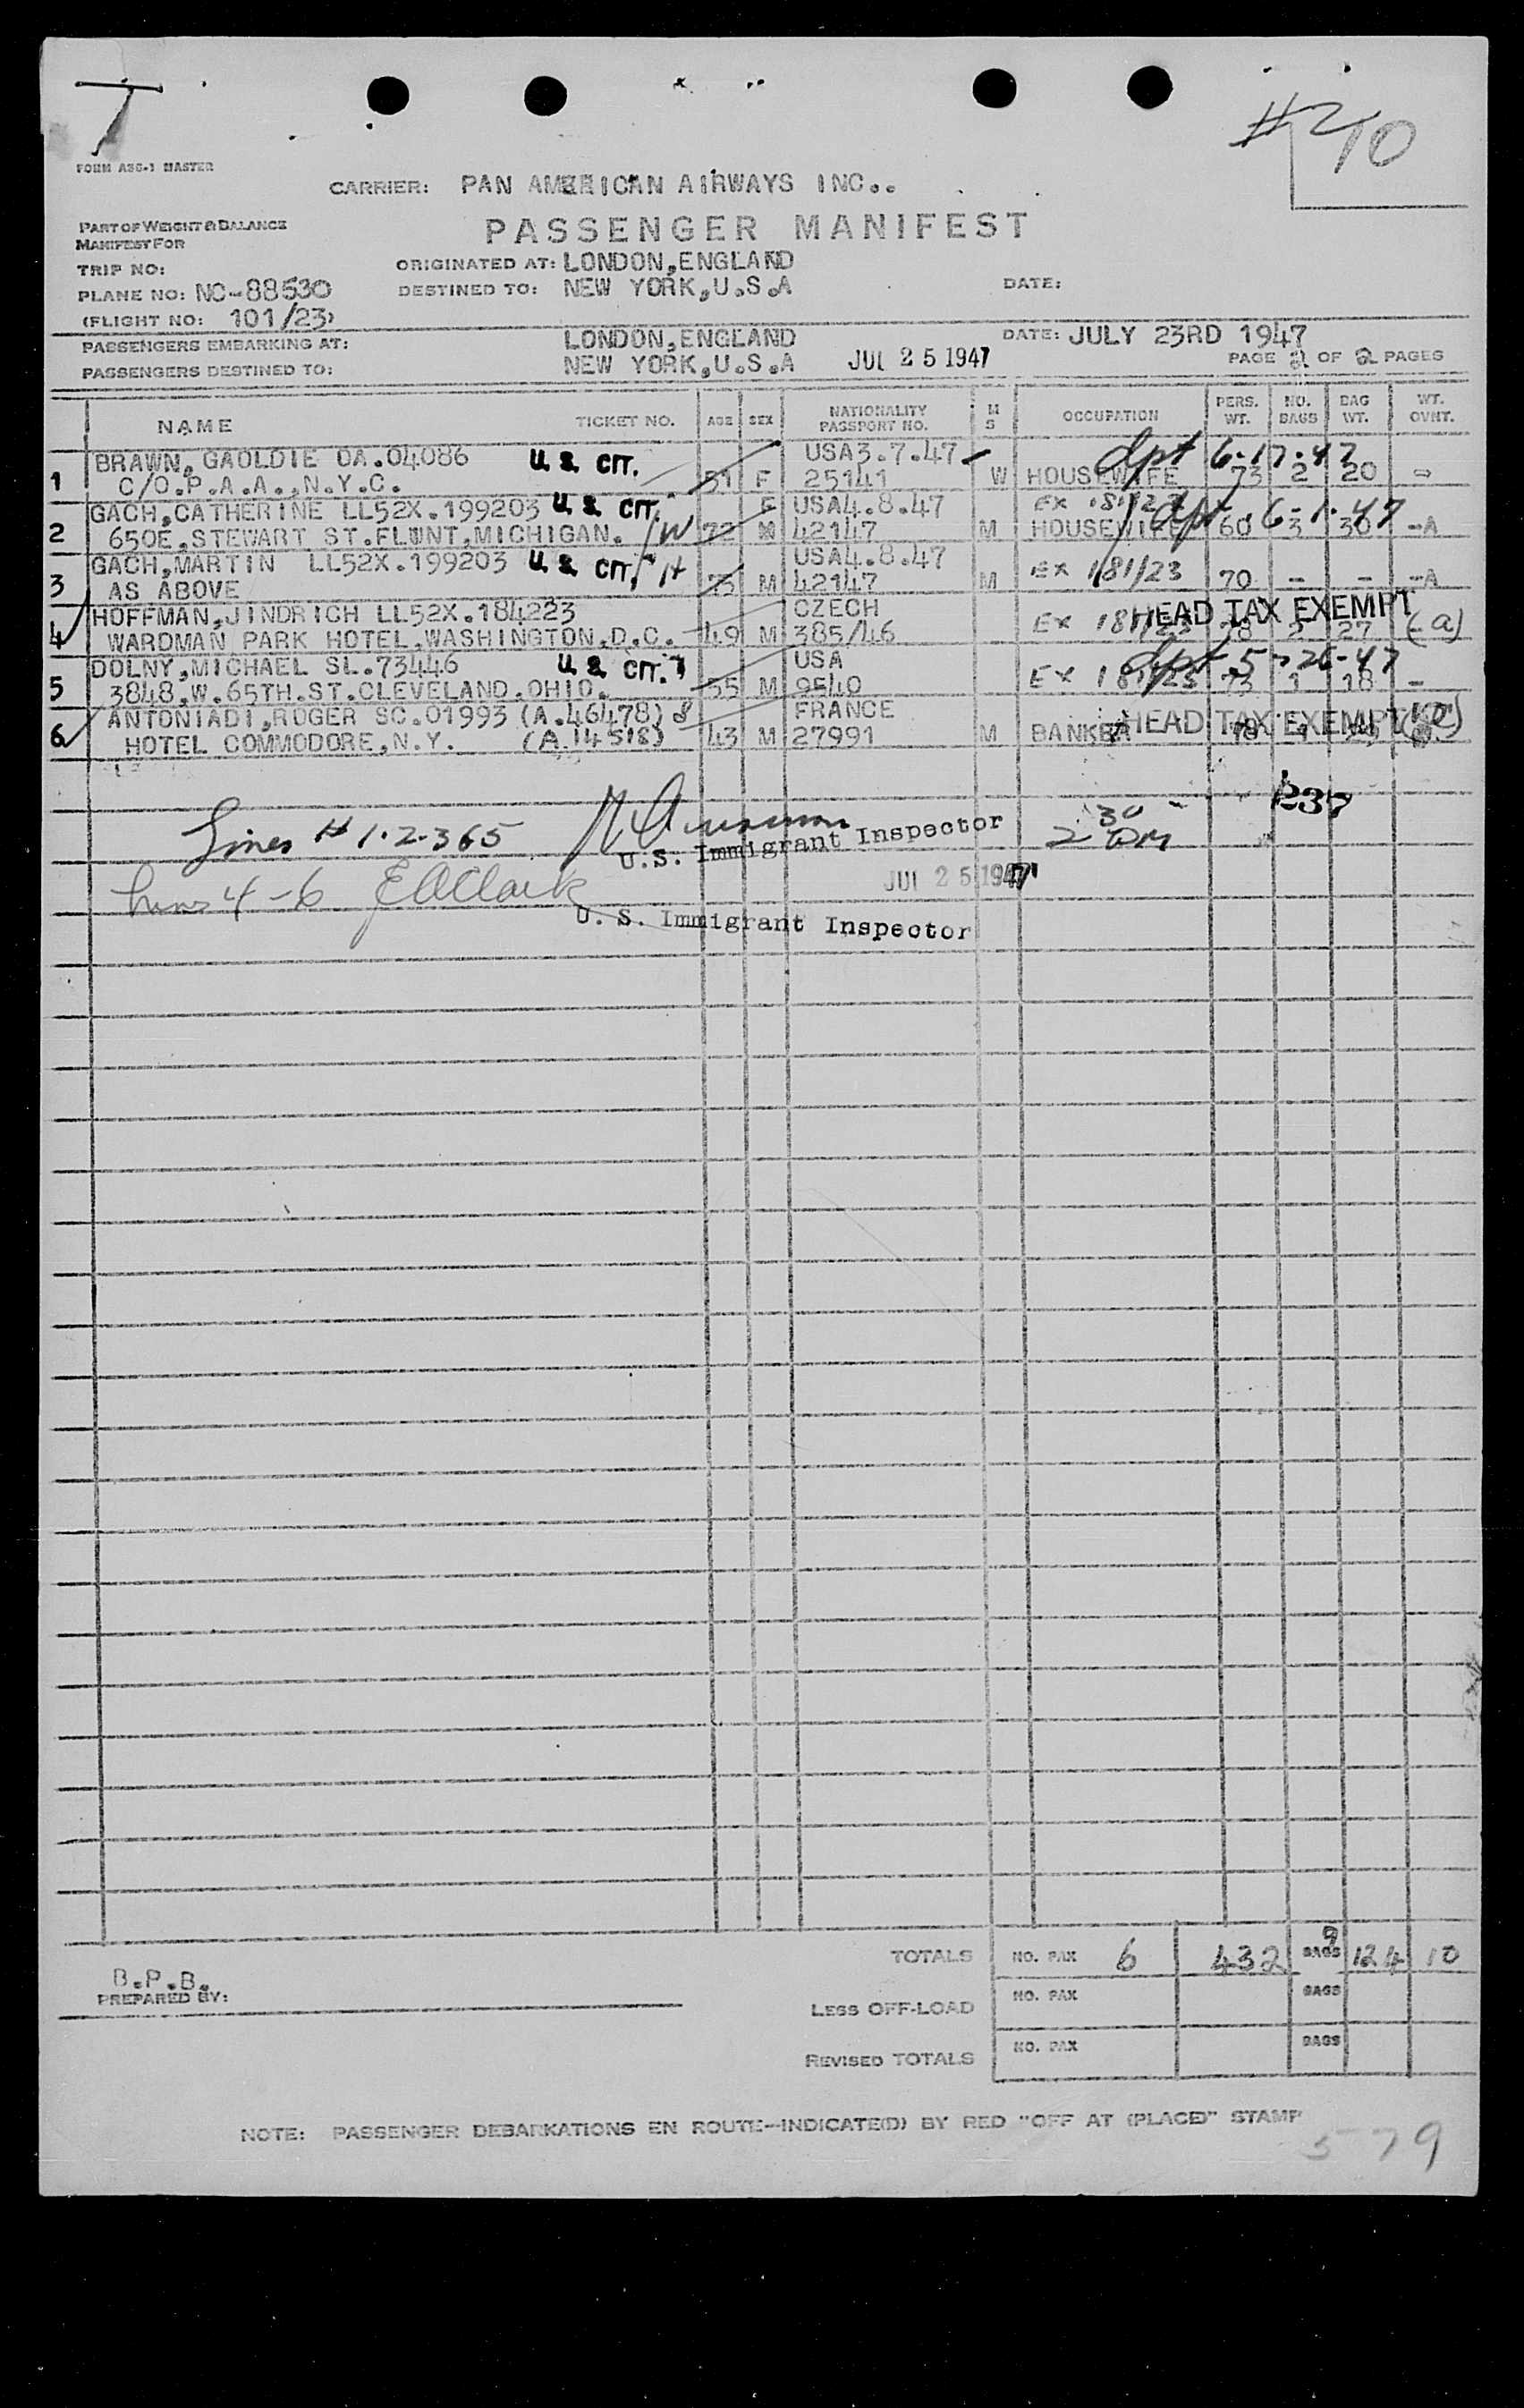 T
#2
10
FORM ABG-1 MASTER
CARRIER: PAN AMERICAN AIRWAYS INC..
PART OF WEIGHT & BALANCE
MANIFEST FOR
PASSENGER MANIFEST
TRIP NO:
ORIGINATED AT: LONDON,ENGLAND
PLANE NO: NC-88530
DESTINED TO: NEW YORK,U.S.A
DATE:
(FLIGHT NO: 101/23)
PASSENGERS EMBARKING AT: LONDON,ENGLAND DATE: JULY 23RD 1947
PASSENGERS DESTINED TO: NEW YORK,U.S.A JUL 25 1947 PAGE 2 OF 2 PAGES
NAME TICKET NO. AGE SEX NATIONALITY PASSPORT NO. M S OCCUPATION PERS. WT. NO. BAGS BAG WT. WT. OVNT.
BRAWN, GAOLDIE OA.04086 U.S. CIT. USA3.7.47 dpt 6-17-47
1 C/O.P.A.A.,N.Y.C. 51 F 25141 W HOUSEWIFE 73 2 20 -
GACH,CATHERINE LL52X.199203 U.S. CIT. F USA4.8.47 EX 181/23 dpt 6-1-47
2 650E.STEWART ST.FLUNT,MICHIGAN. W 72 M 42147 M HOUSEWIFE 60 3 30 -A
GACH,MARTIN LL52X.199203 U.S. CIT. H USA4.8.47
3 AS ABOVE 75 M 42147 M EX 181/23 70 - - -A
HOFFMAN,JINDRICH LL52X.184223 CZECH HEAD TAX EXEMPT
4 WARDMAN PARK HOTEL,WASHINGTON,D.C. 49 M 385/46 EX 181/23 78 2 27 (a)
DOLNY,MICHAEL SL.73446 U.S. CIT. USA dpt 5-26-47
5 3848,W.65TH.ST.CLEVELAND.OHIO. 55 M 9540 EX 181/23 73 1 18 -
ANTONIADI,ROGER SC.01993 (A.46478) 8 FRANCE HEAD TAX EXEMPT
6 HOTEL COMMODORE,N.Y. (A.14518) 43 M 27991 M BANKER 78 1
Lines # 1-2-3&5
U.S. Immigrant Inspector
2 30 PM
JUL 25 1947
Lines 4-6 E A Clark
U. S. Immigrant Inspector
TOTALS NO. PAX 6 432 9 BAGS 124 10
B.P.B.
PREPARED BY:
LESS OFF-LOAD NO. PAX BAGS
REVISED TOTALS NO. PAX BAGS
NOTE: PASSENGER DEBARKATIONS EN ROUTE—INDICATE(D) BY RED "OFF AT (PLACE)" STAMP
579